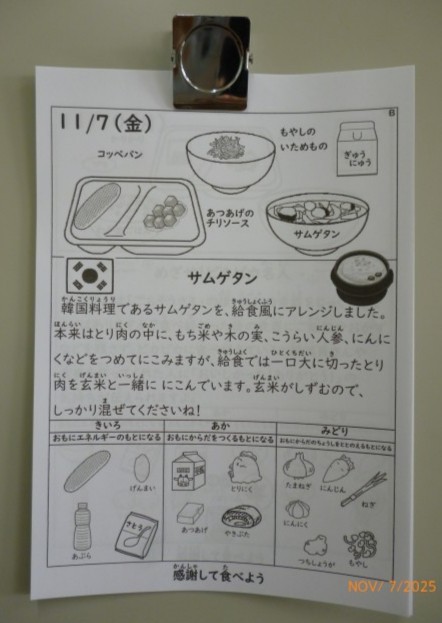 6
11/7(金)
コッペパン
もやしの
いためもの
ぎゅう
にゅう
あつあげの
チリソース
サムゲタン
サムゲタン
韓国料理であるサムゲタンを、給食風にアレンジしました。
本来はとり肉の中に、もち米や木の実、こうらい人参、にんに
くなどをつめてにこみますが、給食では一口大に切ったとり
肉を玄米と一緒に にこんでいます。玄米がしずむので、
しっかり混ぜてくださいね!
きいろ
おもにエネルギーのもとになる
あか
おもにからだをつくるもとになる
みどり
おもにからだのちょうしをととのえるもとになる
げんまい
あぶら
さとう
とりにく
あつあげ
やきぶた
たまねぎ
にんじん
ねぎ
にんにく
つちしょうが
もやし
感謝して食べよう
NOV/ 7/2025